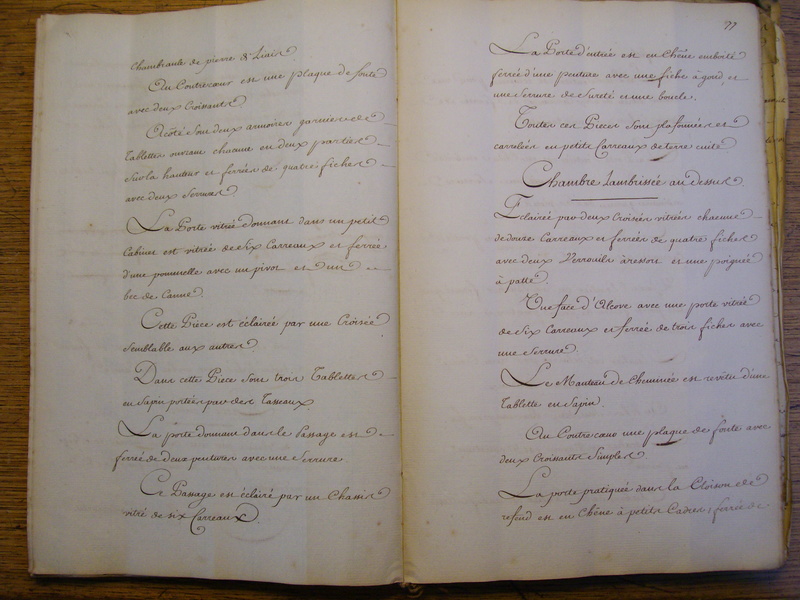 chambranle de pierre de Liais
Au Contrecoeur est une plaque de fonte
avec deux Croissants
Acoté sont deux armoires garnies de
Tablettes ouvrant chacune en deux parties
Sur la hauteur et ferrées de quatre fiches
avec deux Serrures
La Porte vitrée donnant dans un petit
Cabinet est vitrée de Six Carreaux et ferrée
d'une pommelle avec un pivot et d'un
bec de Canne.
Cette Pièce est éclairée par une Croisée
Semblable aux autres.
Dans cette Pièce sont trois Tablettes
en Sapin portées par des Tasseaux
La porte donnant dans le Passage est
ferrée de deux pentures avec une Serrure.
Ce Passage est éclairé par un Chassis
vitré de six Carreaux.
77
La Porte d'entrée est en Chêne emboité
ferrée d'une penture avec une fiche à gond, et
une Serrure de Sureté et une boucle.
Toutes ces Pieces sont plafonnées et
carrelées en petits Carreaux de terre cuite
Chambre Lambrissée au dessus.
Eclairée par deux Croisées vitrées chacune
de douze Carreaux et ferrées de quatre fiches
avec deux Verrouils àressort et une poignée
à patte.
Une face d'Alcove avec une porte vitrée
de Six Carreaux et ferrée de trois fiches avec
une serrure.
Le Manteau de Cheminée est revêtu d'une
Tablette en Sapin.
Au Contrecoeur une plaque de fonte avec
deux Croissants Simples.
La porte pratiquée dans la Cloison de
refend est en Chêne à petits Cadres, ferrée de